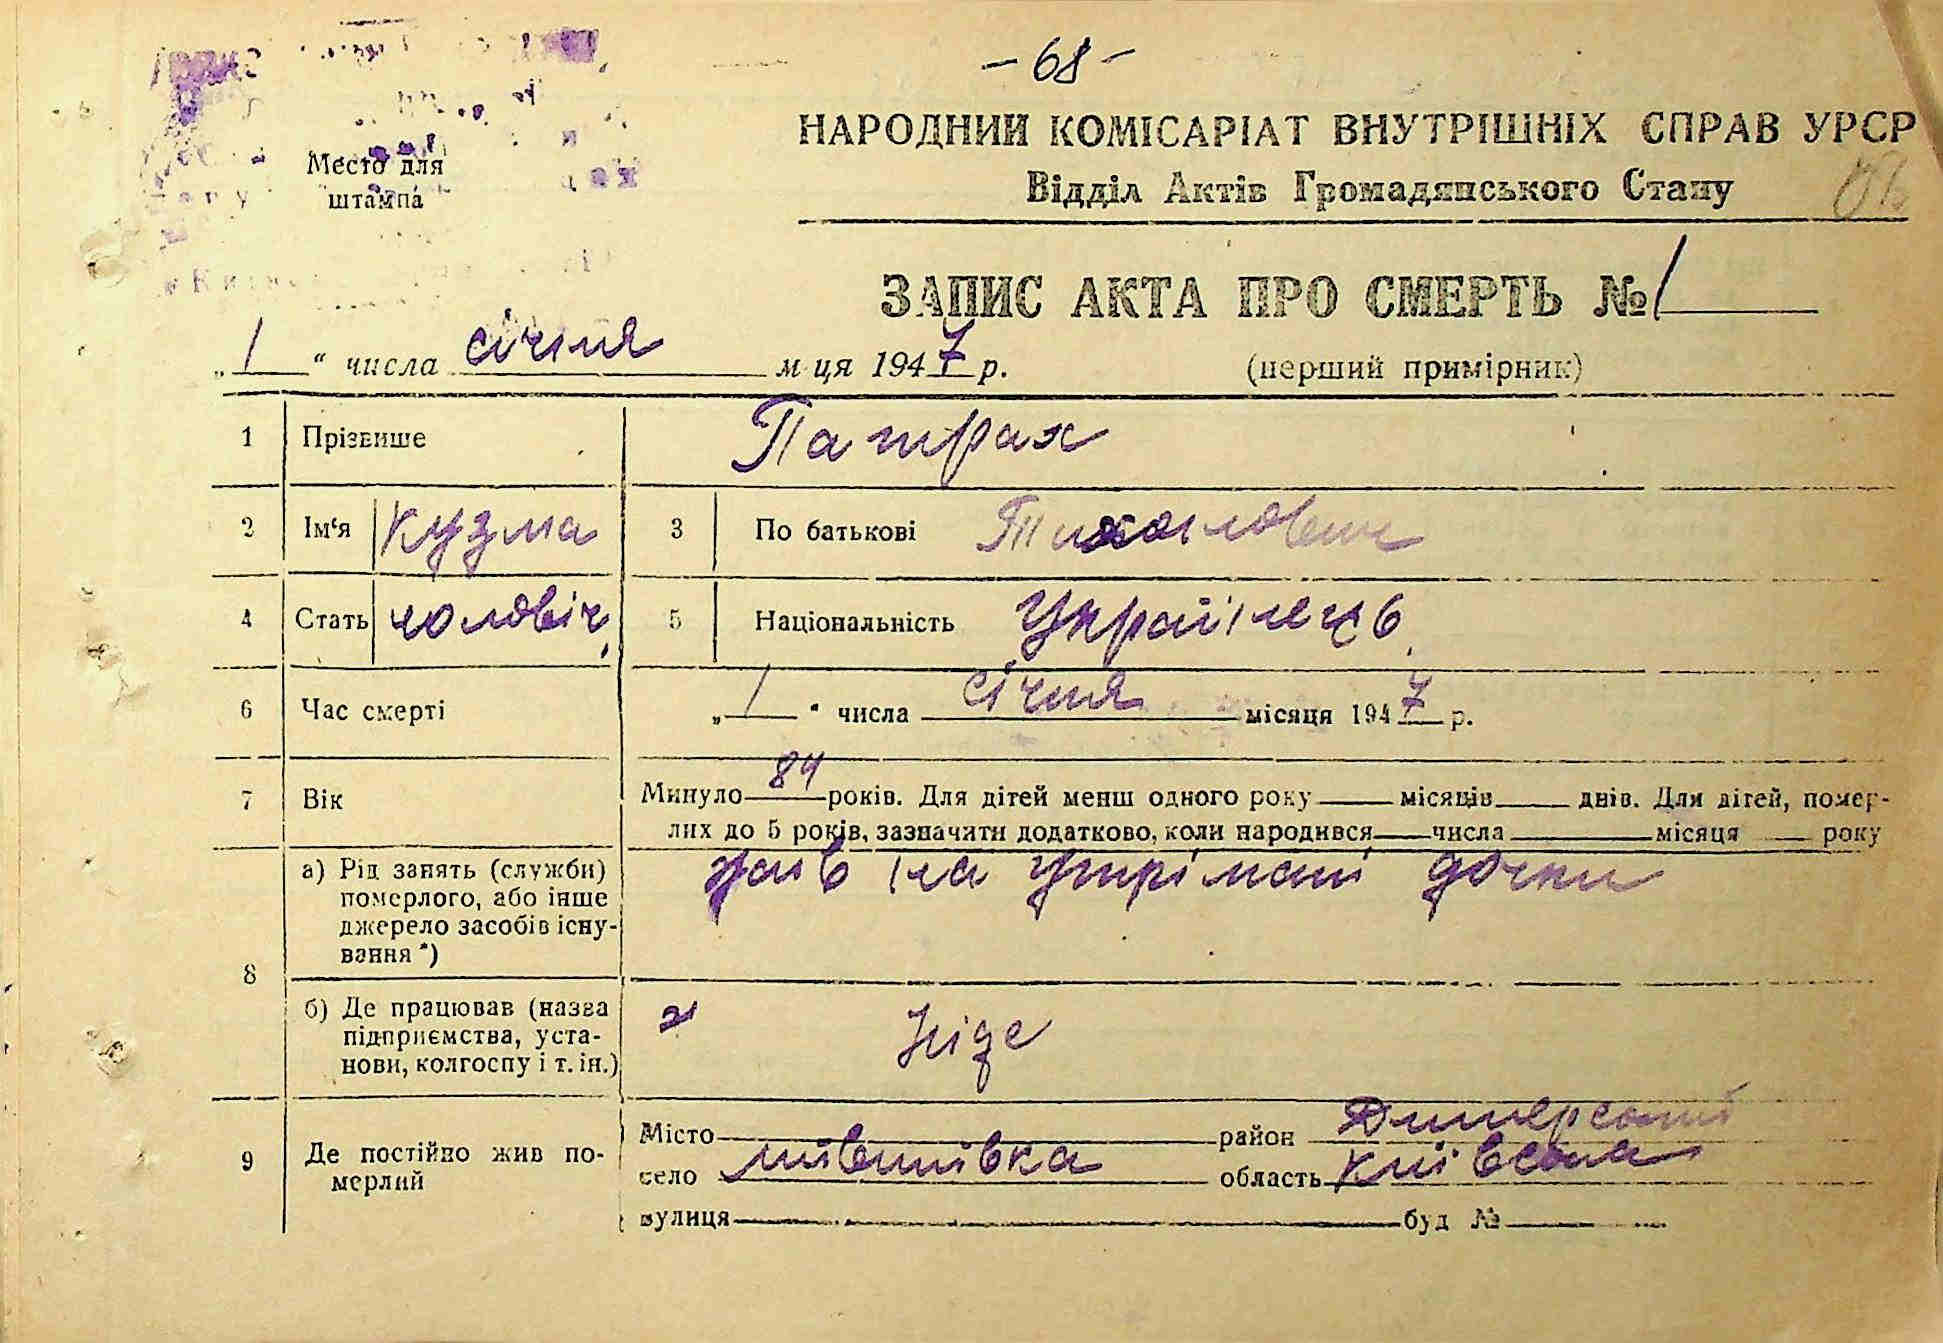 - 68 -
Место для
штампа
НАРОДНИЙ КОМІСАРІАТ ВНУТРІШНІХ СПРАВ УРСР
Відділ Актів Громадянського Стану
ЗАПИС АКТА ПРО СМЕРТЬ № 1
„1“ числа січня м-ця 1947 р. (перший примірник)
1 Прізвише Патрах
2 Ім‘я Кузма 3 По батькові
4 Стать чоловіч. 5 Національність Українець
6 Час смерті „1“ числа січня місяця 1947 р.
7 Вік Минуло 84 років. Для дітей менш одного року місяців днів. Для дітей, помер-
лих до 5 років, зазначити додатково, коли народився числа місяця року
8 а) Рід занять (служби) померлого, або інше джерело засобів існування *) жив на утрімані дочки
б) Де працював (назва підприємства, установи, колгоспу і т. ін.) Ніде
9 Де постійно жив померлий Місто район Димерский
село область Київська
вулиця буд №